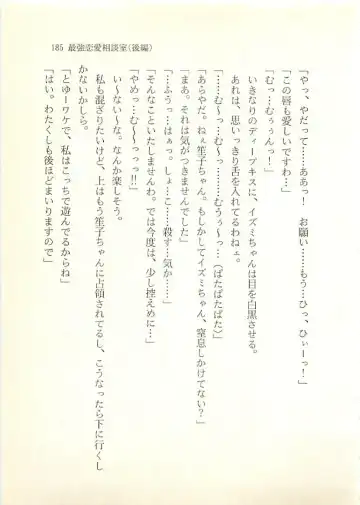 185 最強恋愛相談室(後編)
「やっ、やだって……ああっ！　お願い……もう…ひっ、ひぃーっ！
「この唇も愛しいですわ…」
むっ…むぅぅんっ！」
いきなりのディープキスに、イズミちゃんは目を白黒させる。
あれは、思いっきり舌を入れてるわねェ。
「……むぅ〜っ…むっ………むうぅ〜っ…（ぱたぱたぱた）」
「あらやだ。ねぇ笙子ちゃん。もしかしてイズミちゃん、窒息しかけてない？」
「まあ。それは気がつきませんでした」
「…ふうっ…はぁっ。しょ…こ……殺す…気か……」
「そんなこといたしませんわ。では今度は、少し控えめに…」
「やめっ…むっ〜っっっ!!」
い〜ないーな。なんか楽しそう。
私も混ざりたいけど、上はもう笙子ちゃんに占領されてるし、こうなったら下に行くし
かないかしら。
「とゆーワケで、私はこっちで遊んでるからね」
「はい。わたくしも後ほどまいりますので」